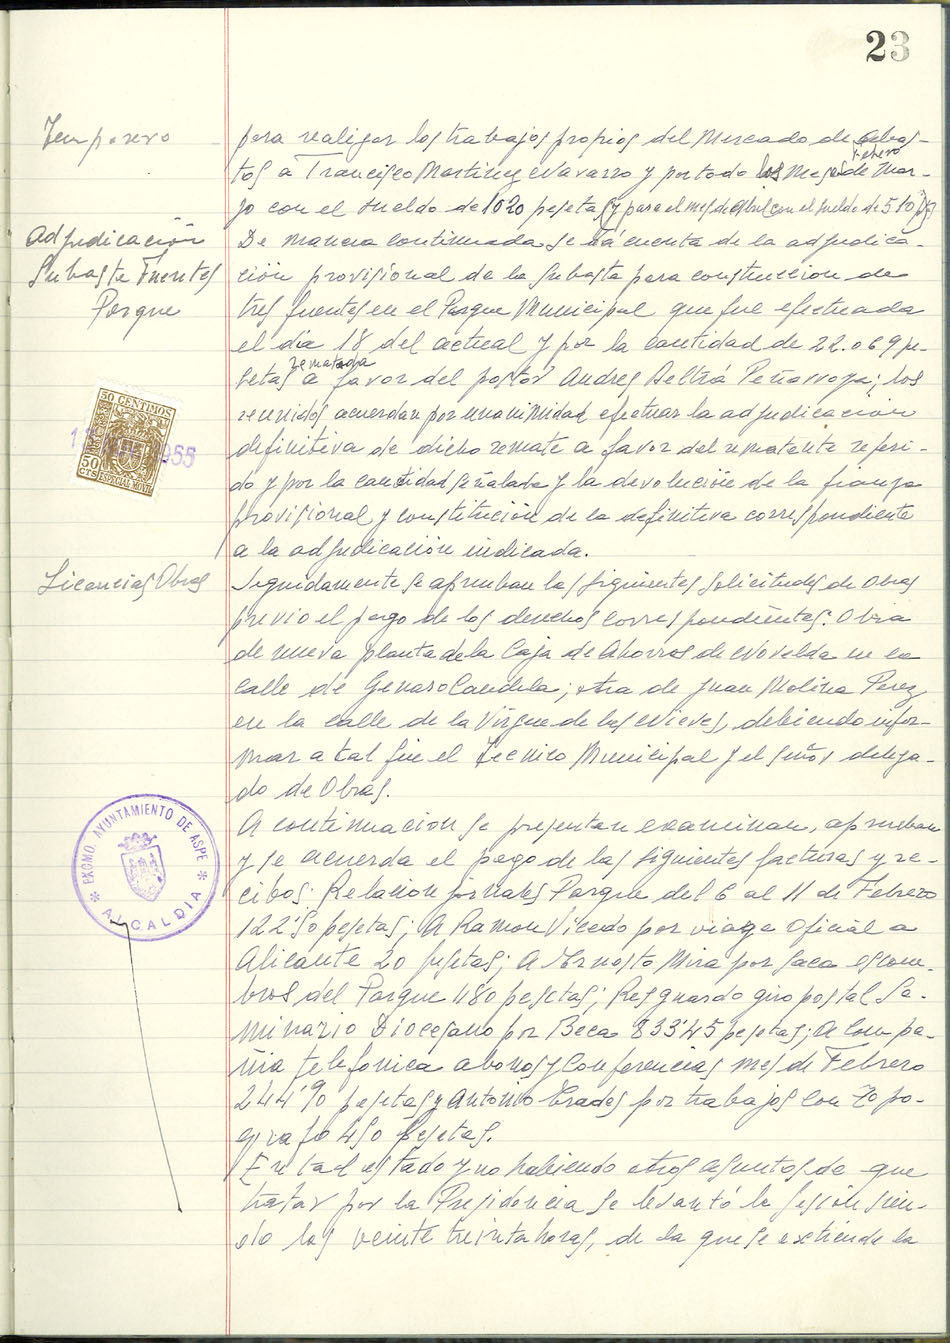 23
Temporero
para realizar los trabajos propios del Mercado de Abas-
Febrero
tos a Francisco Martinez Navarro y por todo los Meses de Mar-
zo con el sueldo de 1020 pesetas (y para el mes de Abril con el sueldo de 510)
Adjudicación
Subasta Fuentes
Parque
De manera continuada se dá cuenta de la adjudica-
ción provisional de la Subasta para construccion de
tres fuentes en el Parque Municipal que fue efectuada
el día 18 del actual y por la cantidad de 22.069 pe-
rematada
setas a favor del postor Andres Beltrá Peñarroya; los
reunidos acuerdan por unanimidad efectuar la adjudicación
definitiva de dicho remate a favor del rematante referi-
do y por la cantidad señalada y la devolución de la fianza
provisional y constitución de la definitiva correspondiente
a la adjudicación indicada.
50 CENTIMOS
1955
50 CTS
ESPECIAL MOVIL
Licencias Obras
Seguidamente se aprueban las siguientes solicitudes de Obras
previo el pago de los derechos correspondientes: Obra
de nueva planta de la Caja de Ahorros de Novelda en la
calle de Genaro Candela; otra de Juan Molina Perez
en la calle de la Virgen de las Nieves, debiendo infor-
mar a tal fin el Tecnico Municipal y el señor delega-
do de Obras.
EXCMO. AYUNTAMIENTO DE ASPE
ALCALDIA
A continuacion se presentan examinan, aprueban
y se acuerda el pago de las siguientes facturas y re-
cibos: Relación jornales Parque del 6 al 11 de Febrero
122'50 pesetas; A Ramon Vicedo por viaje Oficial a
Alicante 20 pesetas; A Ernesto Mira por saca escom-
bros del Parque 480 pesetas; Resguardo giro postal Se-
minario Diocesano por Beca 833'45 pesetas; A Compa-
ñia telefonica abonos y Conferencias mes de Febrero
244'90 pesetas y Antonio Prades por trabajos con Topo-
grafo 450 pesetas.
En tal estado y no habiendo otros asuntos de que
tratar por la Presidencia se levantó la sesión sien-
do las veinte treinta horas, de la que se extiende la